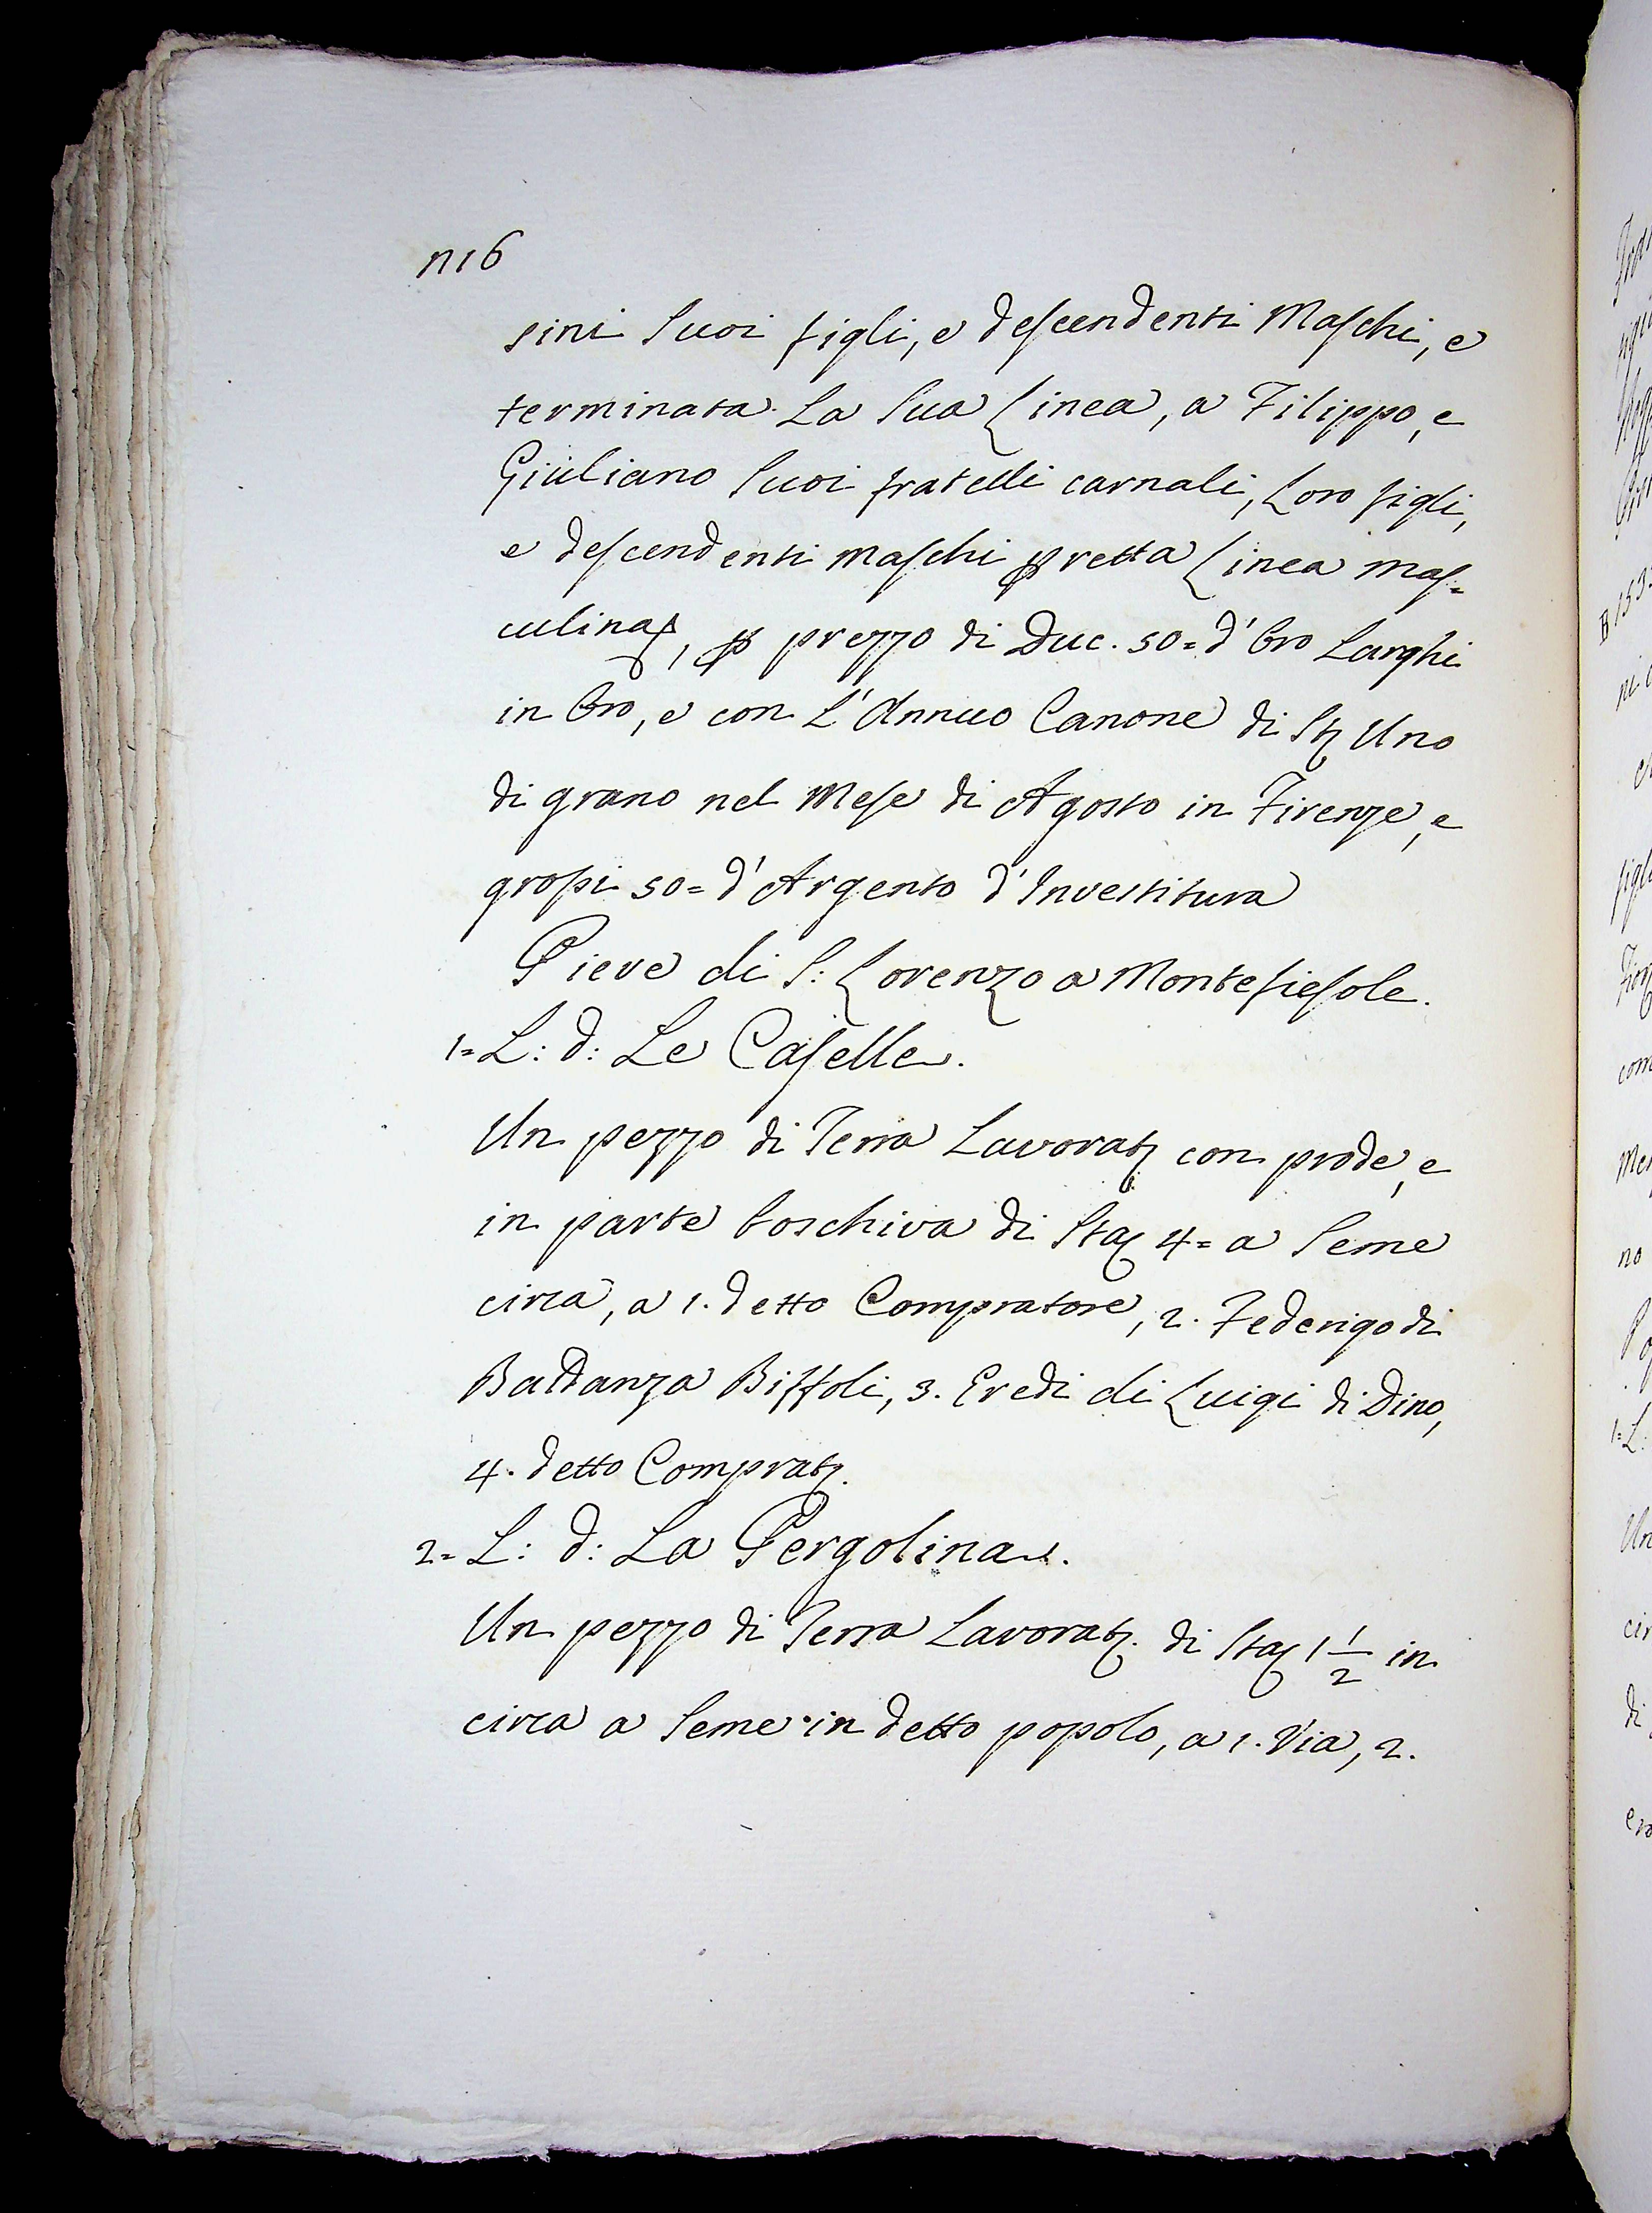 n16
sini Suoi figli, e descendenti Maschi, e
terminata La Sua Linea, a Filippo, e
Giuliano Suoi fratelli carnali, Loro figli,
e descendenti maschi ꝑ retta Linea mas=
culina, ꝑ prezzo di Duc. 50= d'Oro Larghi
in Oro, e con L'Annuo Canone di St. Uno
di grano nel Mese di Agosto in Firenze, e
grossi 50= d'Argento d'Investitura
Pieve di S: Lorenzo a Montefiesole.
1= L: d: Le Caselle.
Un pezzo di Terra Lavorat. con prode, e
in parte boschiva di Sta. 4= a Seme
circa, a 1. detto Compratore, 2. Federigo di
Baldanza Biffoli, 3. Eredi di Luigi di Dino,
4. detto Comprat.
2= L: d: La Pergolina.
Un pezzo di Terra Lavorat. di Sta. 1 1/2 in
circa a Seme in detto popolo, a 1. Via, 2.